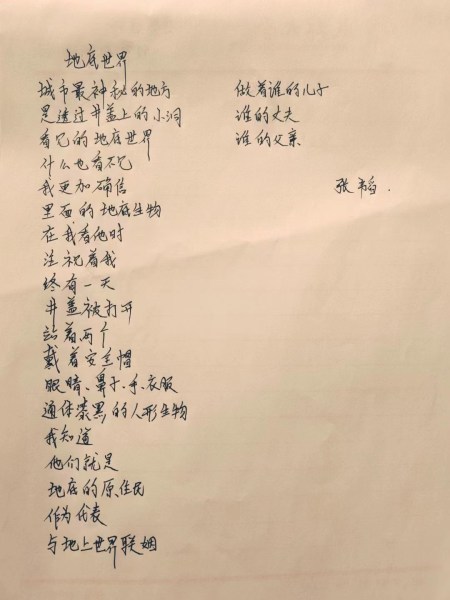 地底世界
城市最神秘的地方
是透过井盖上的小洞
看它的地底世界
什么也看不见
我更加确信
里面的地底生物
在我看他时
注视着我
终有一天
井盖被打开
站着两个
戴着安全帽
眼睛、鼻子、手、衣服
通体漆黑的人形生物
我知道
他们就是
地底的原住民
作为代表
与地上世界联姻
做着谁的儿子
谁的丈夫
谁的父亲
张韬.